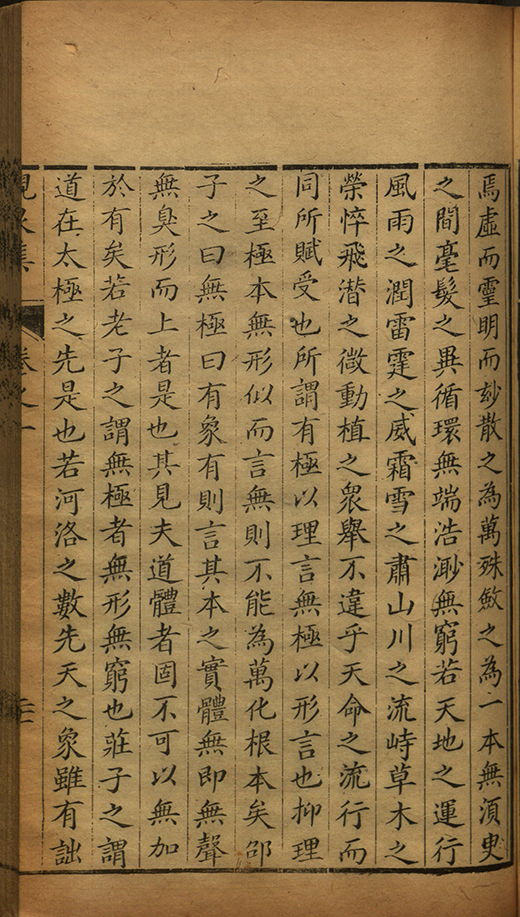 焉虛而靈明而玅散之為萬殊斂之為一本無湏臾
之間毫髮之異循環無端浩渺無窮若天地之運行
風雨之潤雷霆之威霜雪之肅山川之流峙草木之
榮悴飛潛之微動植之衆舉不違乎天命之流行而
同所賦受也所謂有極以理言無極以形言也抑理
之至極本無形似而言無則不能為萬化根本矣邵
子之曰無極曰有象有則言其本之實體無即無聲
無臭形而上者是也其見夫道體者固不可以無加
於有矣若老子之謂無極者無形無窮也莊子之謂
道在太極之先是也若河洛之數先天之象雖有詘
峴泉集
卷之一